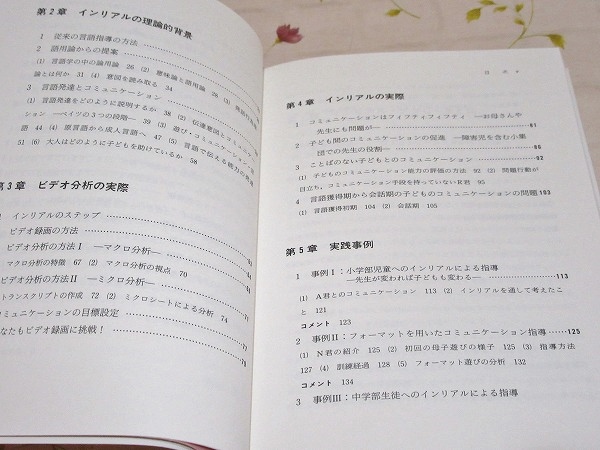 第2章 インリアルの理論的背景
1 従来の言語指導の方法
2 語用論からの提案
(1) 言語学の中の語用論 26 (2) 意味論と語用論
論とは何か 31 (4) 意図を読み取る 34
3 言語発達とコミュニケーション
(1) 言語発達をどのように説明するか 38 (2) 伝達意図とコミュニ
ション ―ベイツの3つの段階― 39 (3) 遊び・コミュニケーション
語 44 (4) 原言語から成人言語へ 47 (5) 言語で伝える能力の
51 (6) 大人はどのように子どもを助けているか 58
第3章 ビデオ分析の実際
インリアルのステップ
ビデオ録画の方法
ビデオ分析の方法Ⅰ ―マクロ分析―
マクロ分析の特徴 67 (2) マクロ分析の視点 70
ビデオ分析の方法Ⅱ ―ミクロ分析―
トランスクリプトの作成 72 (2) ミクロシートによる分析 74
コミュニケーションの目標設定
なたもビデオ録画に挑戦!
目 次
第4章 インリアルの実際
1 コミュニケーションはフィフティフィフティ ―お母さんや
先生にも問題が― 81
2 子ども間のコミュニケーションの促進 ―障害児を含む小集
団での先生の役割― 87
3 ことばのない子どもとのコミュニケーション 92
(1) 子どものコミュニケーション能力の評価の方法 92 (2) 問題行動が
目立ち、コミュニケーション手段を持っていないR君 95
4 言語獲得期から会話期の子どものコミュニケーションの問題 103
(1) 言語獲得初期 104 (2) 会話期 105
第5章 実践事例
1 事例Ⅰ:小学部児童へのインリアルによる指導
―先生が変われば子どもも変わる― 113
(1) A君とのコミュニケーション 113 (2) インリアルを通して考えたこ
と 121
コメント 123
2 事例Ⅱ:フォーマットを用いたコミュニケーション指導 125
(1) N君の紹介 125 (2) 初回の母子遊びの様子 125 (3) 指導方法
127 (4) 訓練経過 128 (5) フォーマット遊びの分析 132
コメント 134
3 事例Ⅲ:中学部生徒へのインリアルによる指導